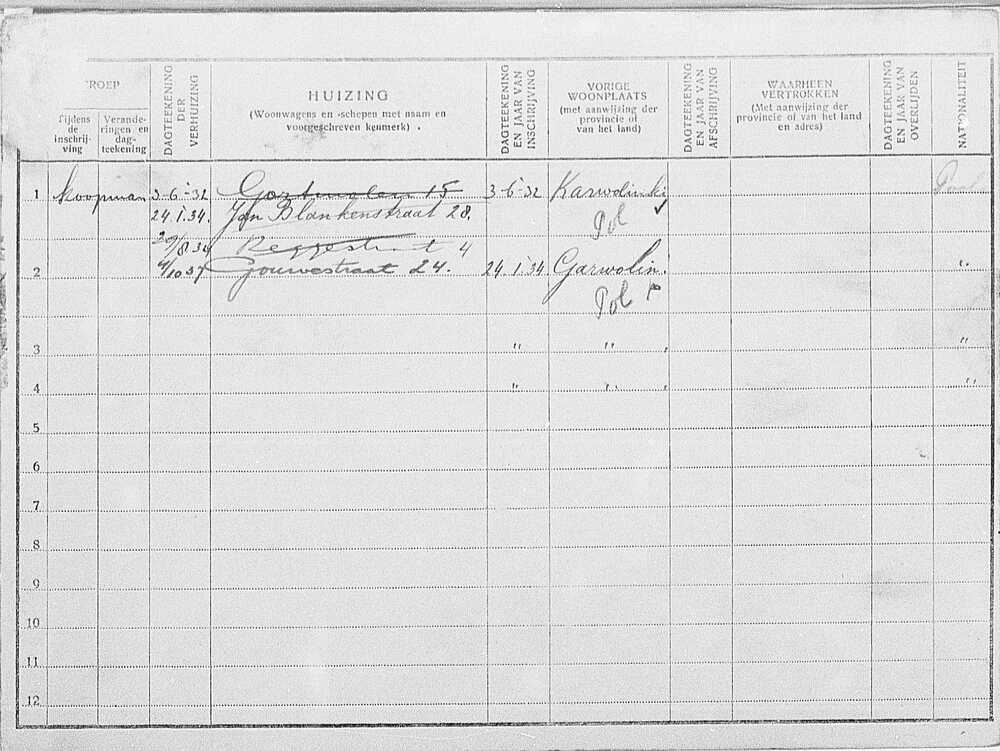 ROEP
Tijdens de inschrijving
Veranderingen en dagteekening
DAGTEEKENING DER VERHUIZING
HUIZING
(Woonwagens en -schepen met naam en voorgeschreven kenmerk)
DAGTEEKENING EN JAAR VAN INSCHRIJVING
VORIGE WOONPLAATS
(met aanwijzing der provincie of van het land)
DAGTEEKENING EN JAAR VAN AFSCHRIJVING
WAARHEEN VERTROKKEN
(Met aanwijzing der provincie of van het land en adres)
DAGTEEKENING EN JAAR VAN OVERLIJDEN
NATIONALITEIT
1 koopman 3-6-32 15 3-6-32 Karwolinki
24.1.34. Jan Blankenstraat 28. Pol
29/8.34 Reggestraat 4
2 4/10 37 Gouwestraat 24. 24.1.34. Garwolin. "
Pol
3 " " "
4 " " "
5
6
7
8
9
10
11
12